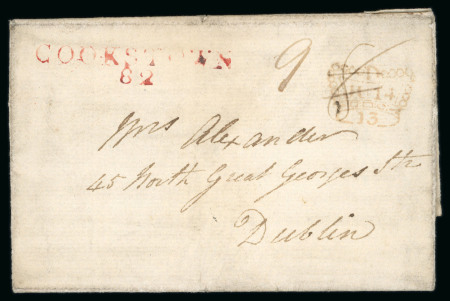 COOKSTOWN
82
9
14
13
Mrs Alexander
45 North Great Georges Str
Dublin